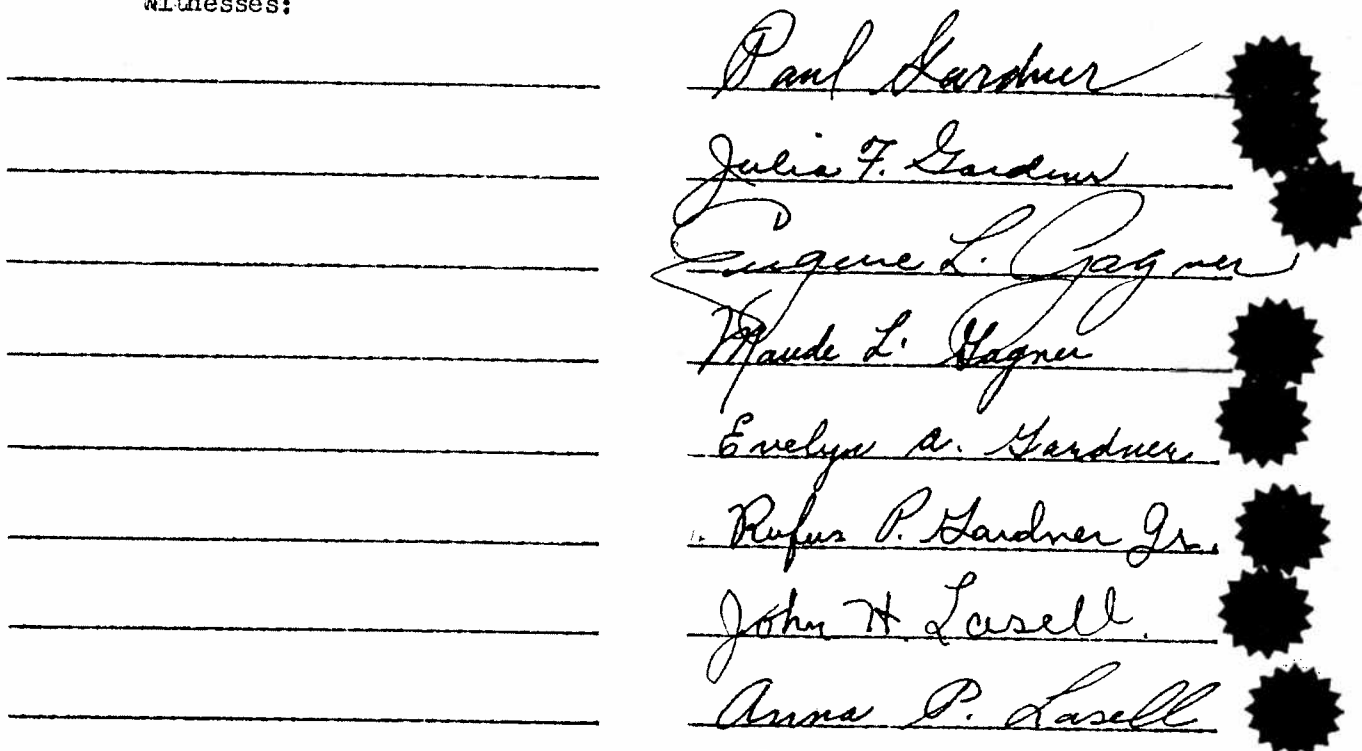 Witnesses:
Paul Gardner
Julia F. Gardner
Eugene L. Gagner
Maude L. Gagner
Evelyn A. Gardner
Rufus P. Gardner Jr.
John H. Lasell.
Anna P. Lasell